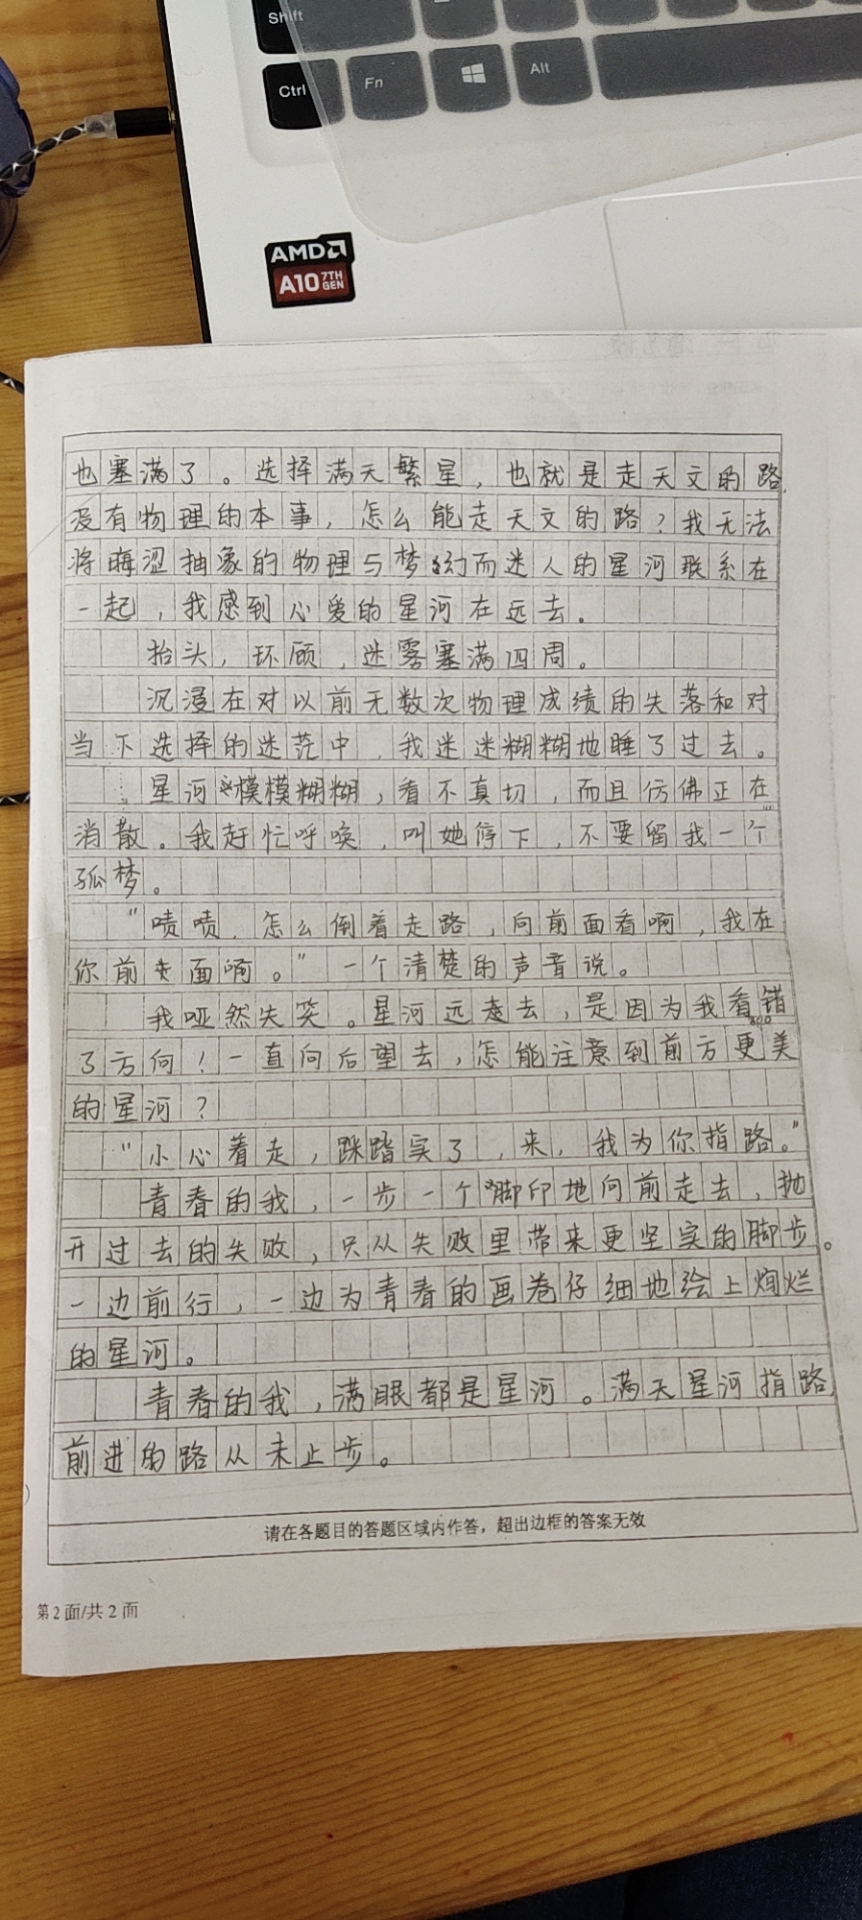 Shift
Ctrl Fn Alt
AMD
A10 7TH GEN
也塞满了。选择满天繁星，也就是走天文的路，
没有物理的本事，怎么能走天文的路？我无法
将晦涩抽象的物理与梦幻而迷人的星河联系在
一起，我感到心爱的星河在远去。
抬头，环顾，迷雾塞满四周。
沉浸在对以前无数次物理成绩的失落和对
当下选择的迷茫中，我迷迷糊糊地睡了过去。
星河模模糊糊，看不真切，而且仿佛正在
消散。我赶忙呼唤，叫她停下，不要留我一个
孤梦。
“啧啧，怎么倒着走路，向前面看啊，我在
你前面啊。”一个清楚的声音说。
我哑然失笑。星河远去，是因为我看错
800
了方向！一直向后望去，怎能注意到前方更美
的星河？
“小心着走，踩踏实了，来，我为你指路。”
青春的我，一步一个脚印地向前走去，抛
开过去的失败，只从失败里带来更坚实的脚步。
一边前行，一边为青春的画卷仔细地绘上绚烂
的星河。
青春的我，满眼都是星河。满天星河指路，
前进的路从未止步。
请在各题目的答题区域内作答，超出边框的答案无效
第2面/共2面